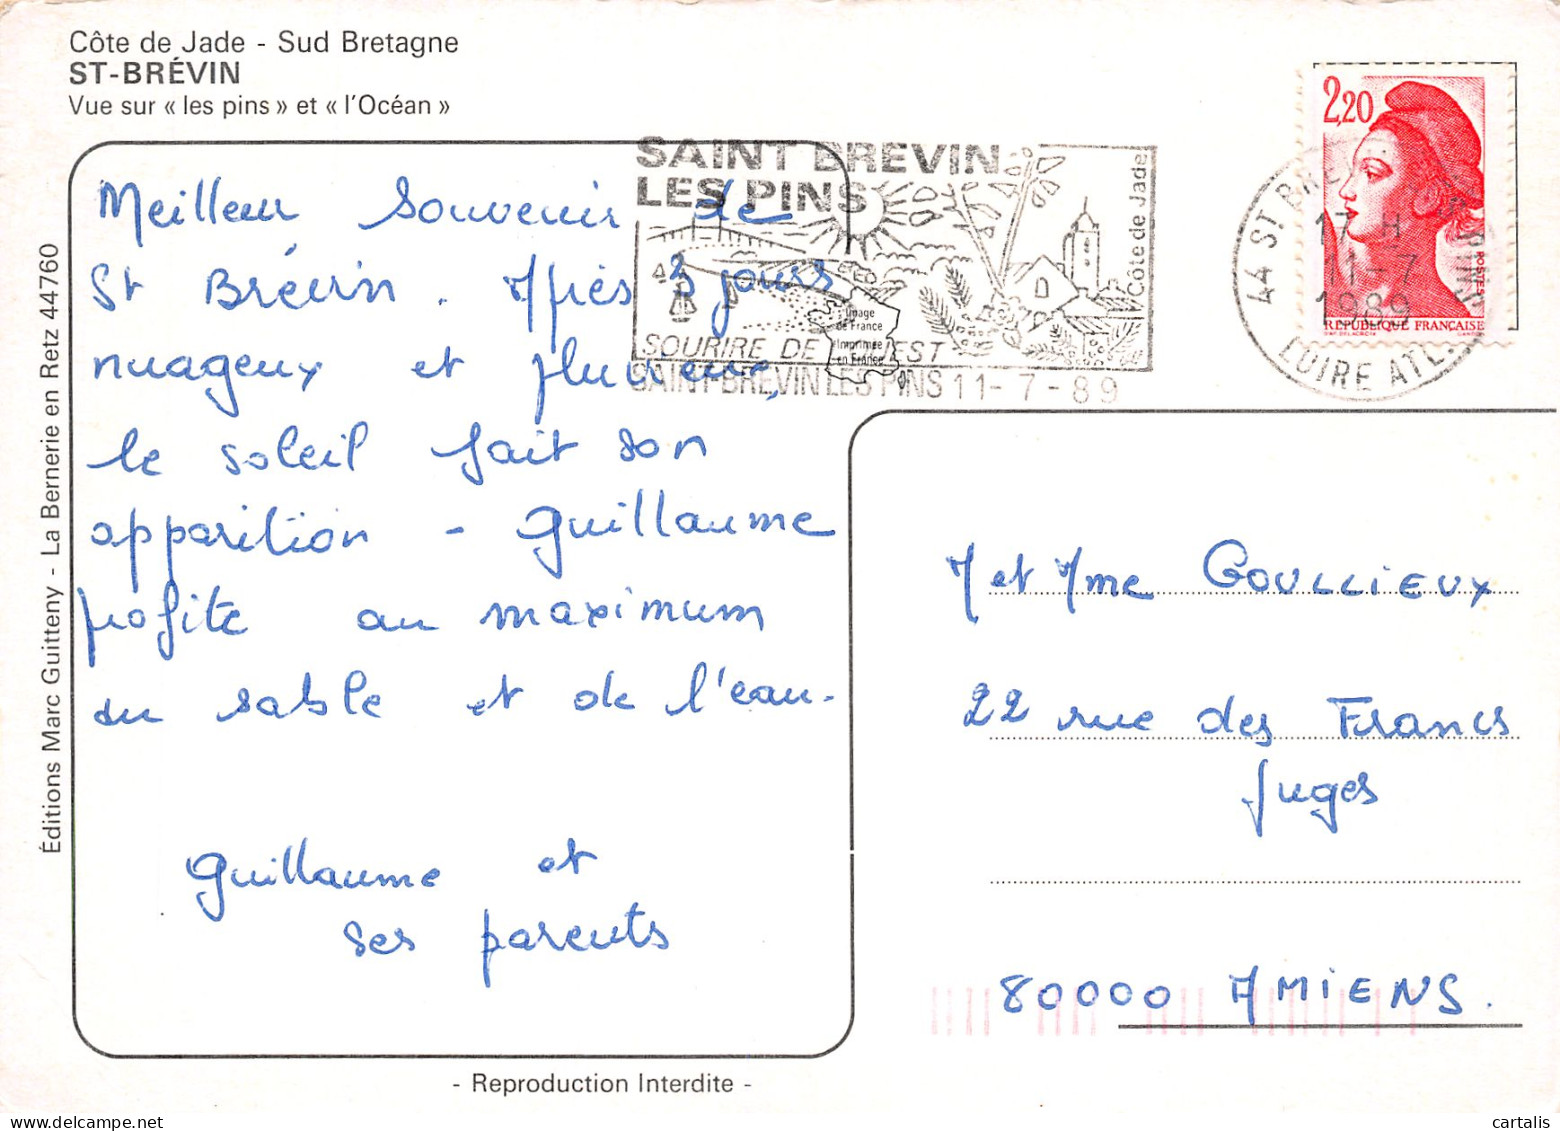 Côte de Jade - Sud Bretagne
ST-BRÉVIN
Vue sur « les pins » et « l'Océan »
Éditions Marc Guitteny - La Bernerie en Retz 44760
Meilleur Souvenir de
St Brévin. Après 3 jours
nuageux et pluvieux,
le soleil fait son
apparition - Guillaume
profite au maximum
du sable et de l'eau.
Guillaume et
ses parents
SAINT BREVIN
LES PINS
Côte de Jade
SOURIRE DE L'OUEST
SAINT-BREVIN LES PINS 11-7-89
Image
de France
Imprimée
en France
2,20
POSTES
RÉPUBLIQUE FRANÇAISE
44 ST BREVIN LES PINS
17 H
11-7
1989
LOIRE ATL.
M et Mme GOULLIEUX
22 rue des Francs
Juges
80000 AMIENS.
- Reproduction Interdite -
cartalis